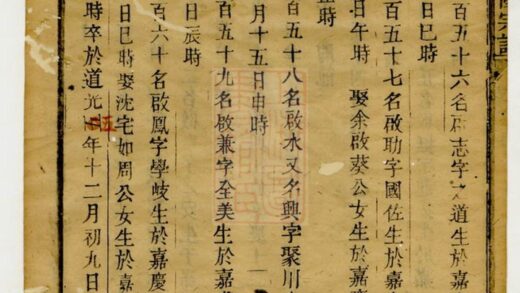 百五十六名啟志字
道生於嘉
日巳時
百五十七名啟助字國佐生於嘉
日午時娶余啟葵公女生於嘉
時
百五十八名啟水又名興字聚川
月十五日申時
百五十九名啟兼字全美生於嘉
日辰時
百六十名啟鳳字學岐生於嘉慶
日巳時娶沈宅如周公女生於嘉
時卒於道光伍年十二月初九日